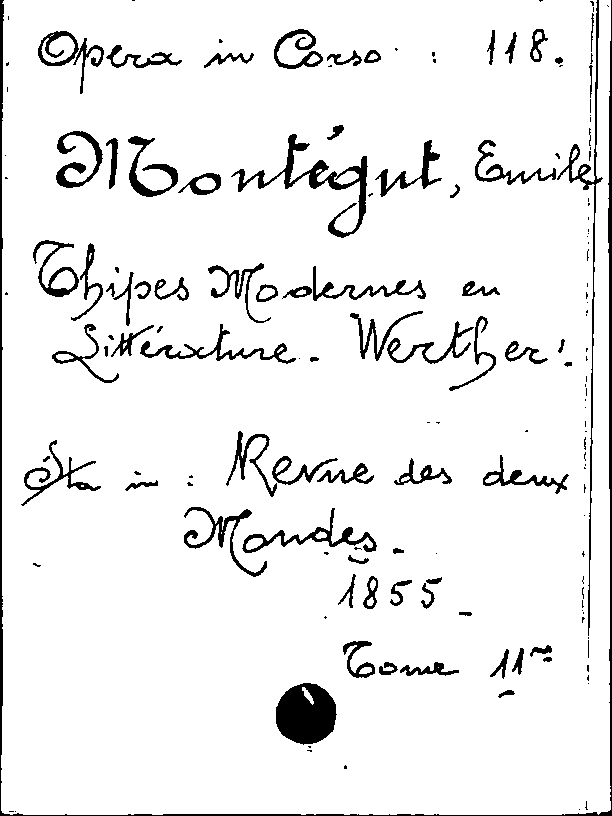 Opera in Corso : 118.
Montégut, Emile
Thipes Modernes en
Littérature. Werther.
Sta in : Revue des deux
Mondes.
1855
Tome 11me